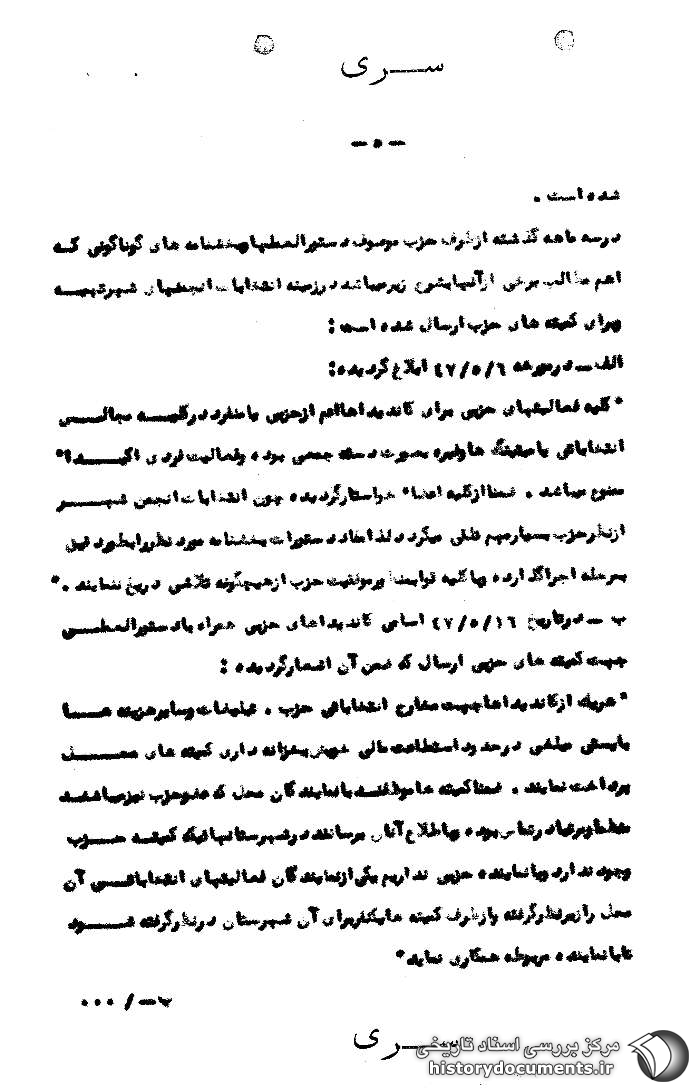 سری
- ۵ -
شده است .
در سه ماهه گذشته از طرف حزب موصوف دستورالعملها و بخشنامه های گوناگونی که
اهم مطالب برخی از آنها بشرح زیر میباشد در زمینه انتخابات انجمنهای شهر تهیه
و برای کمیته های حزب ارسال شده است :
الف ــ در مورخه ٤٧/٥/٦ ابلاغ گردیده:
" کلیه فعالیتهای حزبی برای کاندیداها اعم از حزبی یا منفرد در کلیه مجالس
انتخاباتی یا میتینگ ها و غیره بصورت دسته جمعی بوده و فعالیت فردی اکیدا"
ممنوع میباشد . ضمنا از کلیه اعضا" خواستار گردیده چون انتخابات انجمن شهر
از نظر حزب بسیار مهم تلقی میگردد لذا مفاد دستورات بخشنامه مورد نظر را بطور دقیق
بمرحله اجرا گذارده و با کلیه قوا بمنظور موفقیت حزب از هیچگونه تلاشی دریغ ننمایند . "
ب ــ در تاریخ ٤٧/٥/١٦ اسامی کاندیداهای حزبی همراه با دستورالعملی
جهت کمیته های حزبی ارسال که ضمن آن اشعار گردیده :
" هریک از کاندیداها جهت مخارج انتخاباتی حزب ، تبلیغات و سایر هزینه ها
بایستی مبلغی در حدود استطاعت مالی خویش بخزانه داری کمیته های محل
پرداخت نمایند . ضمنا کمیته ها موظفند با نمایندگان محل که عضو حزب نیز میباشند
در تماس بوده و باطلاع آنان برسانند در شهرستانهائیکه کمیته حزب
وجود ندارد و یا نماینده حزبی نداریم یکی از نمایندگان فعالیتهای انتخاباتی آن
محل را زیر نظر گرفته و از طرف کمیته ها یکنفر برای آن شهرستان در نظر گرفته شود
تا با نماینده مربوطه همکاری نماید "
ب ــ / ۰۰۰
سری
مرکز بررسی اسناد تاریخی
historydocuments.ir